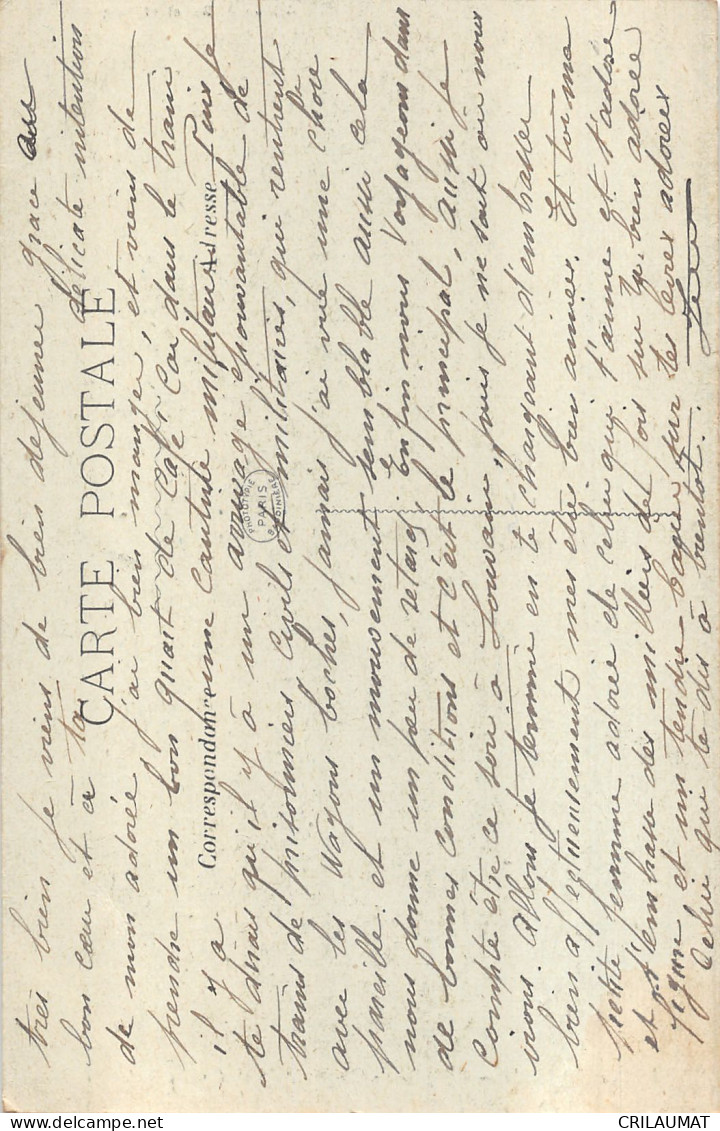 très bien je viens de bien déjeuner grace au
bon cœur et à ta délicate intention
CARTE POSTALE
de mon adorée j'ai bien manger, et viens de
prendre un bon quart de Café Car dans le train
il y a une cantine militaire Puis je
Correspondance
Adresse
te dirais qu'il y à un arrivage épouvantable de
trains de prisonniers civils et militaires, qui rentrent
PHOTOTYPIE
PARIS
avec les Wagons boches, jamais j'ai vue une chose
pareille et un mouvement semblable aussi cela
nous donne un peu de retard Enfin nous voyageons dans
de bonnes conditions et c'est le principal, aussi je
compte être ce soir à Louvain, puis je ne sait où nous
irons. Allons je termine en te chargeant d'embrasser
bien affectueusement mes êtres bien aimées. Et toi ma
petite femme adorée de celui qui t'aime et t'adore
et t'embrasse des milliers de fois sur ta bien adorée
figure et un tendre baiser sur tes lèvres adorées
Celui qui te dis à bientôt.
CRILAUMAT